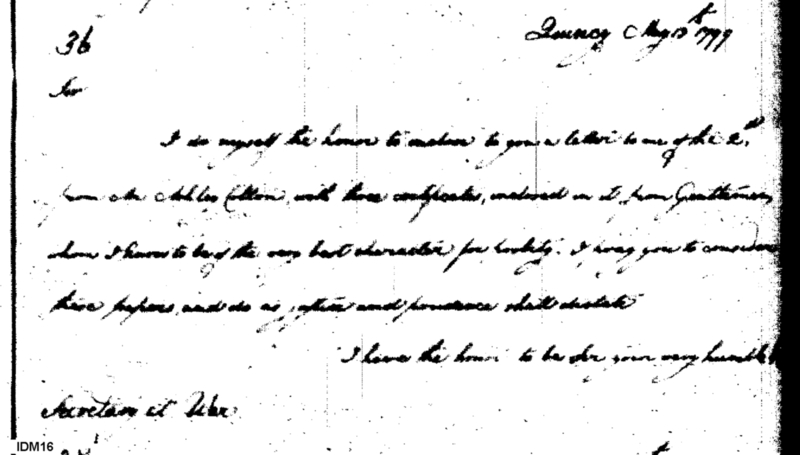 36
Quincy May 13th 1799
Sir
I do myself the honor to inclose to you a letter to me of the 2d.
from Mr Cotton, with three certificates, inclosed in it from Gentlemen,
whom I know to be of the very best character for probity. I pray you to consider
these papers, and do as justice and prudence shall dictate
I have the honor to be Sir your very humble
Secretary at War
IDM16